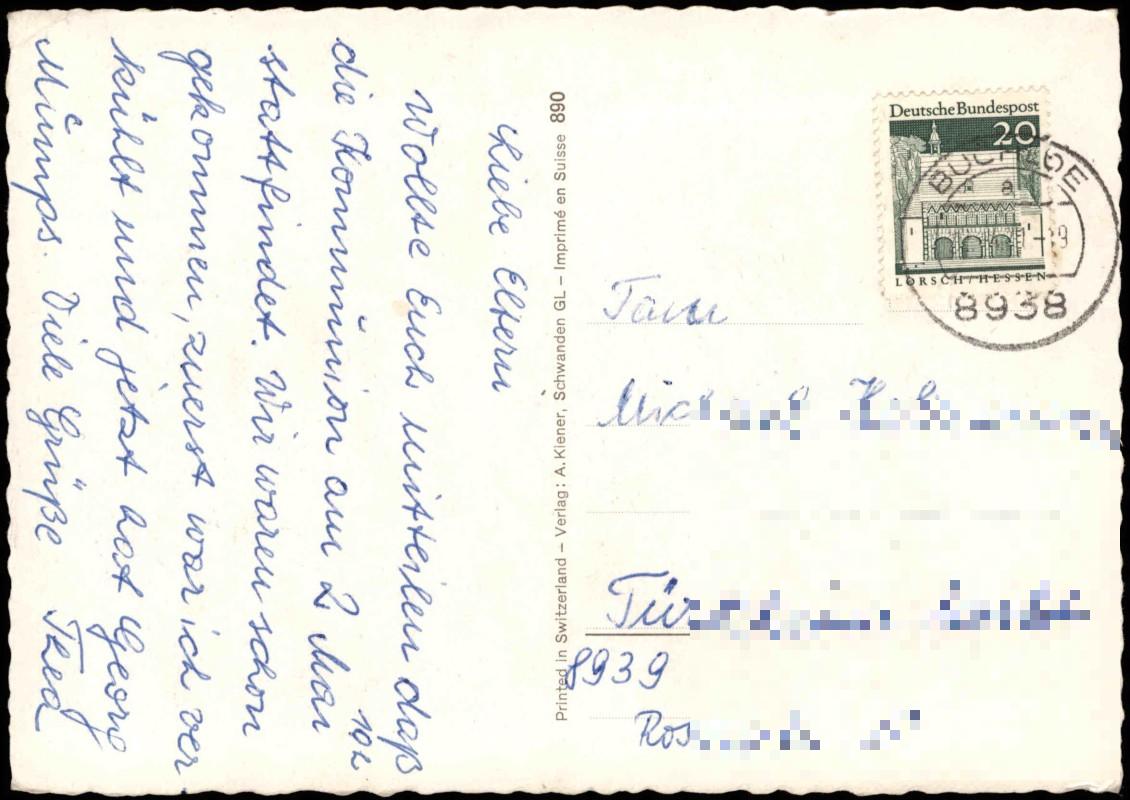 Liebe Eltern
Wollte Euch mitteilen daß
die Kommunion am 2 Mai 10h
stattfindet. Wir waren schon
gekommen, zuerst war ich ver
kühlt und jetzt hat Georg
Mumps. Viele Grüße Thea
Printed in Switzerland – Verlag: A. Kiener, Schwanden GL – Imprimé en Suisse 890
Deutsche Bundespost
20
LORSCH/HESSEN
BUCHLOE
a
8938
Fam
8939